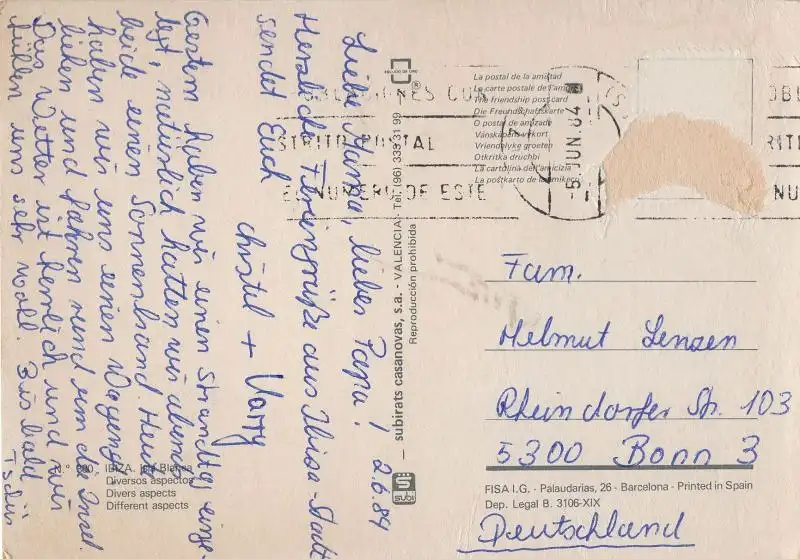 Liebe Mama, lieber Papa! 2.6.84
Herzliche Feriengrüße aus Ibiza-Stadt
sendet Euch
Christel + Harry
Gestern haben wir einen Strandtag einge-
legt, natürlich hatten wir abends
beide einen Sonnenbrand. Heute
haben wir uns einen Wagen ge-
liehen und fahren rund um die Insel.
Das Wetter ist herrlich und wir
fühlen uns sehr wohl. Bis bald
Tschüs
N.° 690 IBIZA. Isla Blanca
Diversos aspectos
Divers aspects
Different aspects
subirats casanovas, s.a. - VALENCIA - Tel. (96) 333 31 99
Reproducción prohibida
ESCUDO DE ORO
®
subi
La postal de la amistad
La carte postale de l'amitié
The friendship postcard
Die Freundschaftskarte
O postal de amizade
Vänskapens vykort
Vriendelyke groeten
Otkritka druchbi
La cartolina dell'amicizia
La postkarto de la amikeco
STRITO POSTAL
NUMERO DE ESTE
5 JUN. 84
RITO
NU
Fam.
Helmut Lenzen
Rheindorfer Str. 103
5300 Bonn 3
FISA I.G. - Palaudarias, 26 - Barcelona - Printed in Spain
Dep. Legal B. 3106-XIX
Deutschland